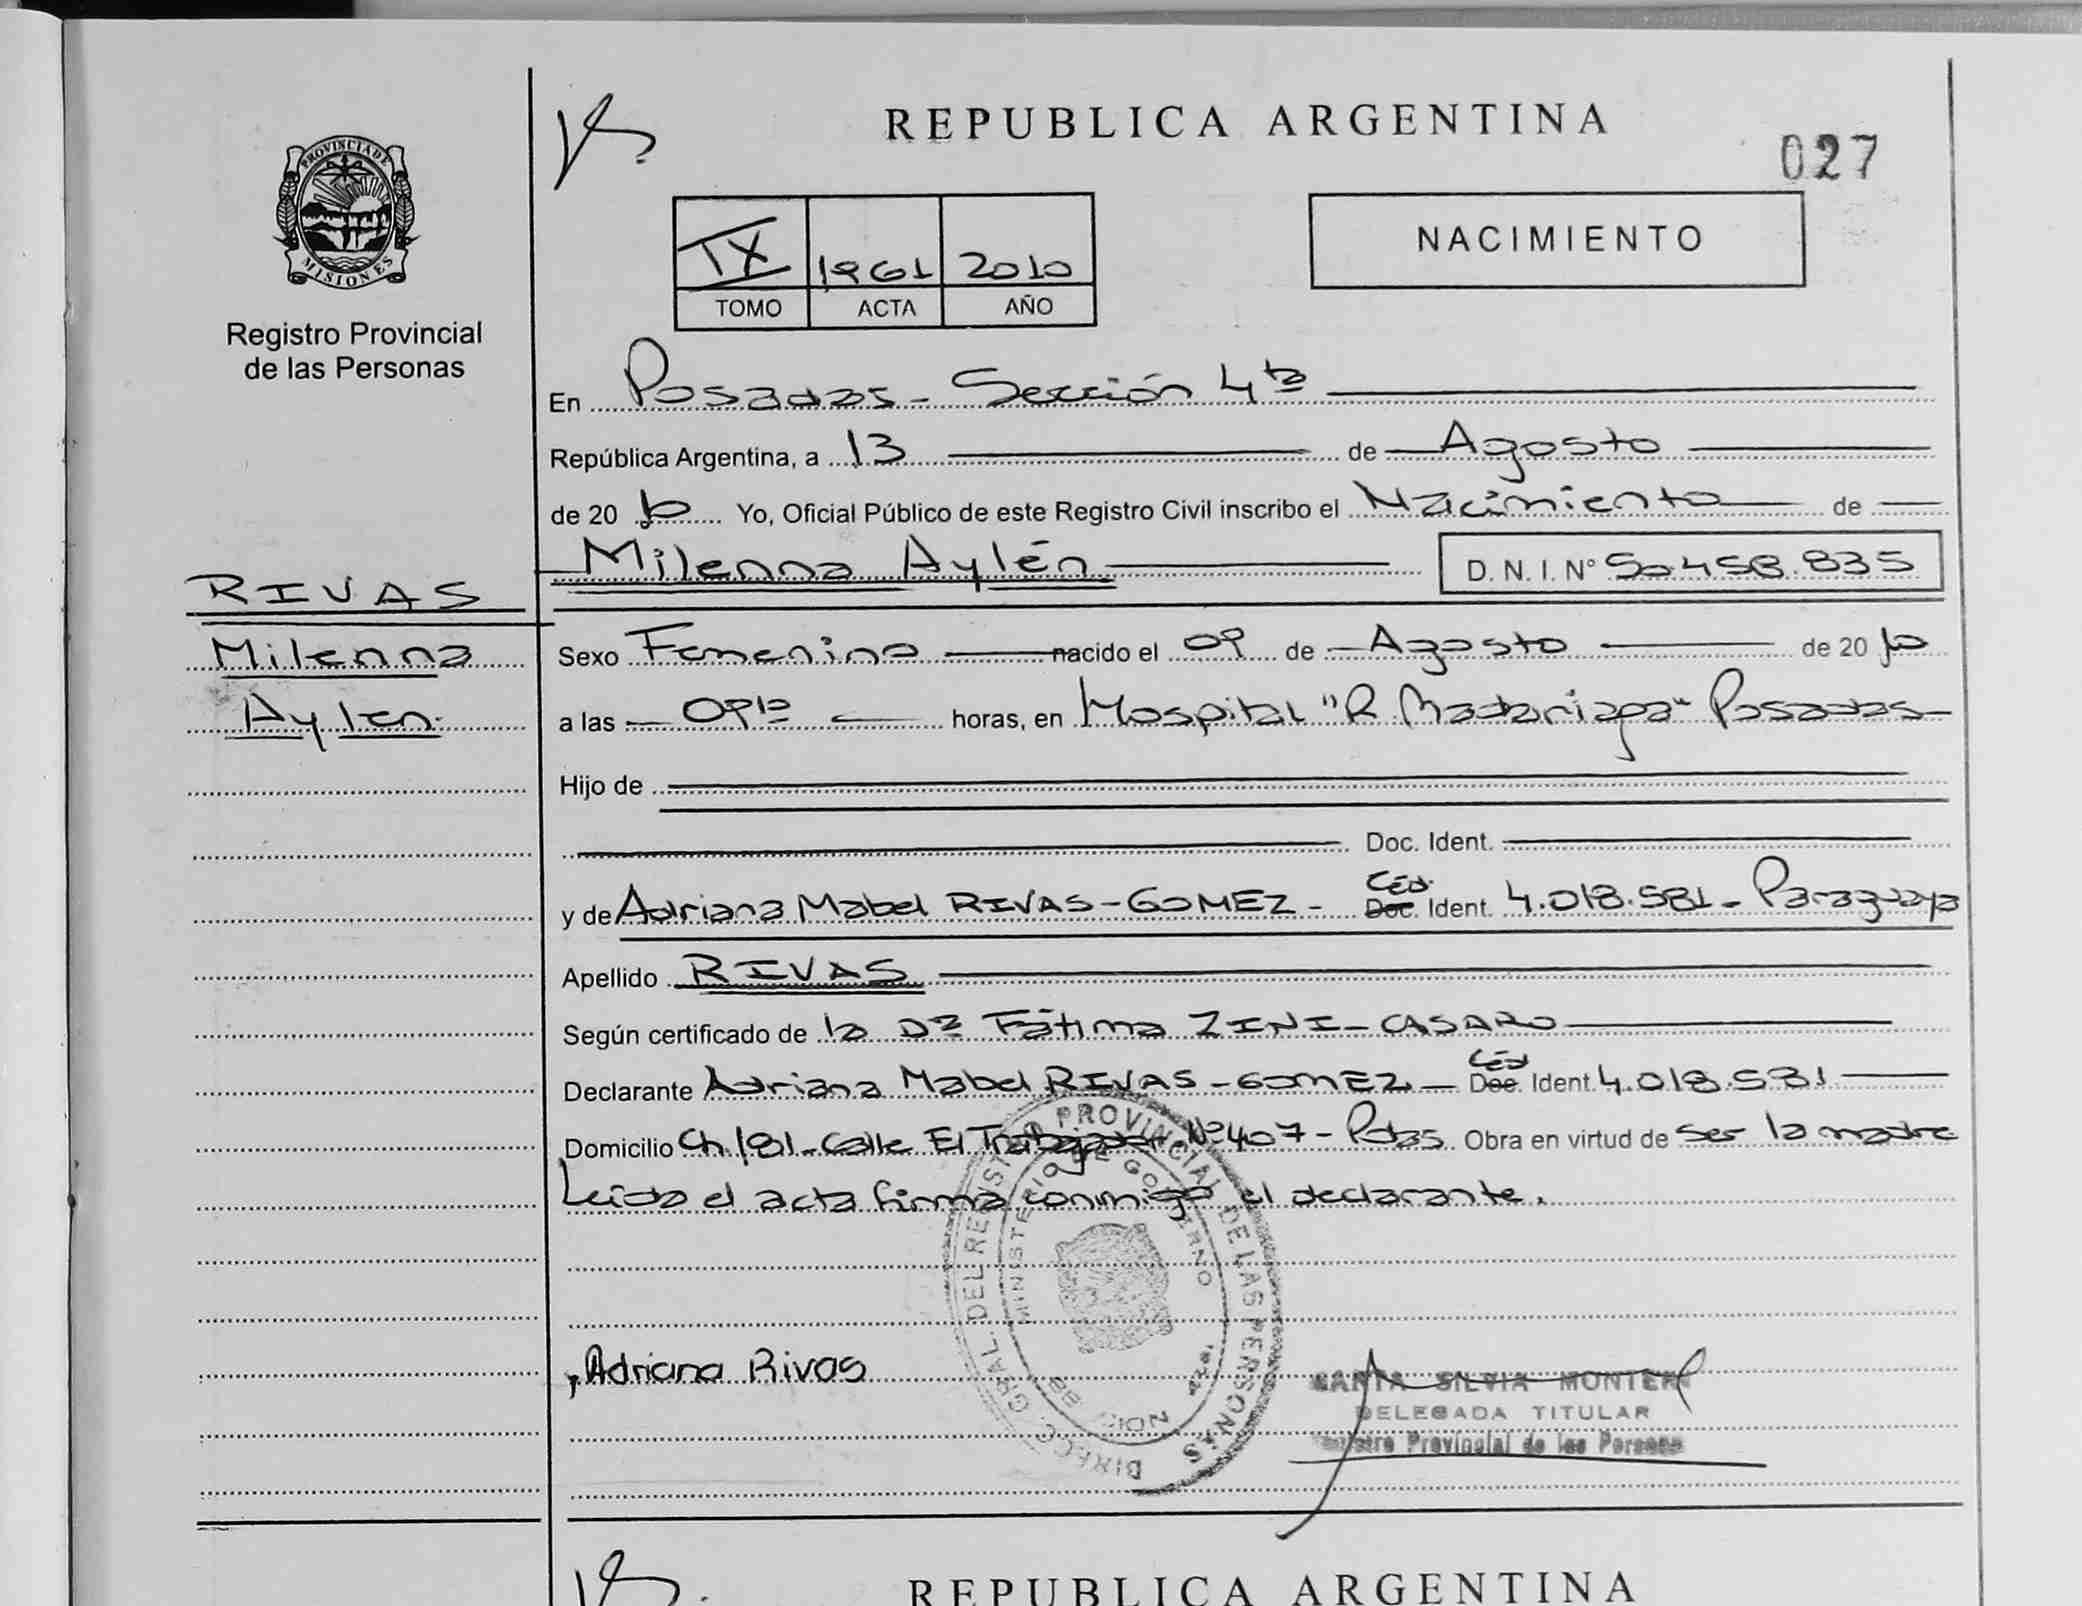 REPUBLICA ARGENTINA
027
PROVINCIA DE
MISIONES
Registro Provincial
de las Personas
IX 1961 2010
TOMO ACTA AÑO
NACIMIENTO
En Posadas - Sección 4ta
República Argentina, a 13 de Agosto
de 20 10 Yo, Oficial Público de este Registro Civil inscribo el Nacimiento de
Milenna Aylén D. N. I. N° 50.458.835
RIVAS
Milenna
Aylen.
Sexo Femenino nacido el 09 de Agosto de 20 10
a las horas, en Hospital "R. Madariaga" Posadas
Hijo de
Doc. Ident.
y de Adriana Mabel RIVAS - GOMEZ - Céd. Doc. Ident. 4.018.581 - Paraguaya
Apellido RIVAS
Según certificado de la Dra Fátima ZINI - CASARO
Declarante Adriana Mabel RIVAS - GOMEZ - Céd Doc. Ident. 4.018.581
Domicilio Ch 181 - Calle El Trabajador N° 407 - Pdas. Obra en virtud de ser la madre
Leída el acta firma conmigo el declarante.
DIRECC. GRAL. DEL REGISTRO PROVINCIAL DE LAS PERSONAS
MINISTERIO DE GOBIERNO
Adriana Rivas
SILVIA MONTERO
DELEGADA TITULAR
Registro Provincial de las Personas
REPUBLICA ARGENTINA